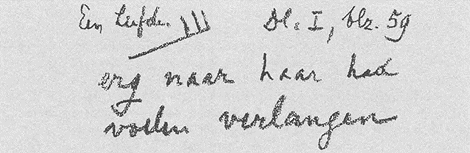 Een Liefde. Dl. I, blz. 59
erg naar haar had
voelen verlangen